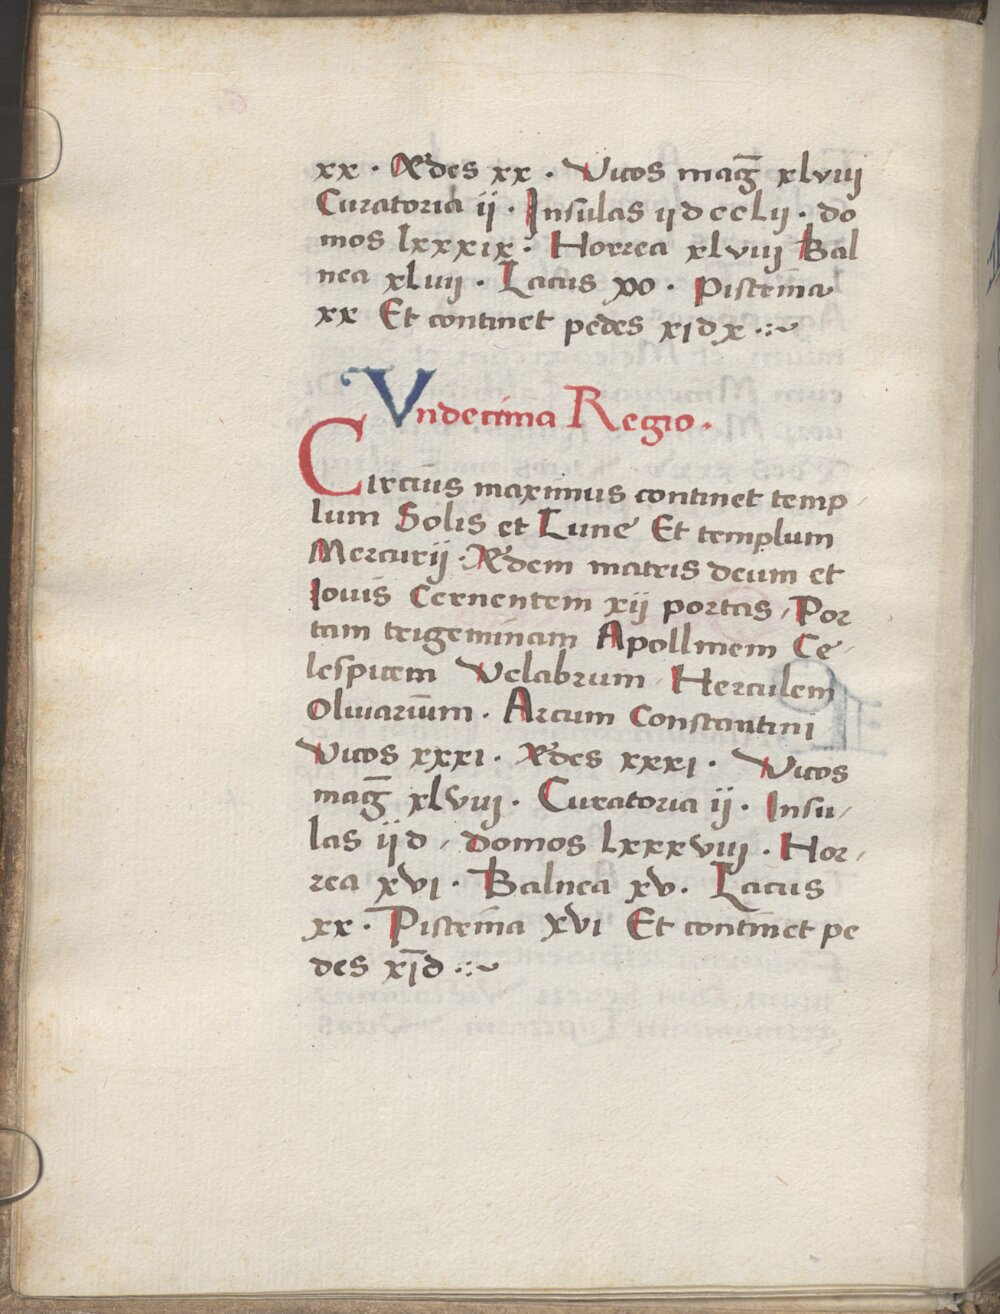 xx · Ædes xx · Vicos mag̅ xlviij
Curatoria ij · Insulas ijdcclij · do
mos lxxxix : Horrea xlviij Bal
nea xlvij · Lacus xo · Pistrin̅a
xx Et continet pedes xidx ·:~
Vndecima Regio .
Circiu̅s maximus continet temp
lum Solis et Lune Et templum
Mercurij · Ædem matris deum et
Iouis Cernentem xij portas, Por
tam trigeminam Apollinem Ce-
lespitem Velabrum Herculem
Oliuariu̅m · Arcum Constantini
Vicos xxxi · Ædes xxxi · Vicos
mag̅ xlviij · Curatoria ij · Insu-
las ijd , domos lxxxviij · Hor-
rea xvi · Balnea xv. Lacus
xx · Pistrin̅a xvi Et contin̅et pe
des xi̅d ·:~